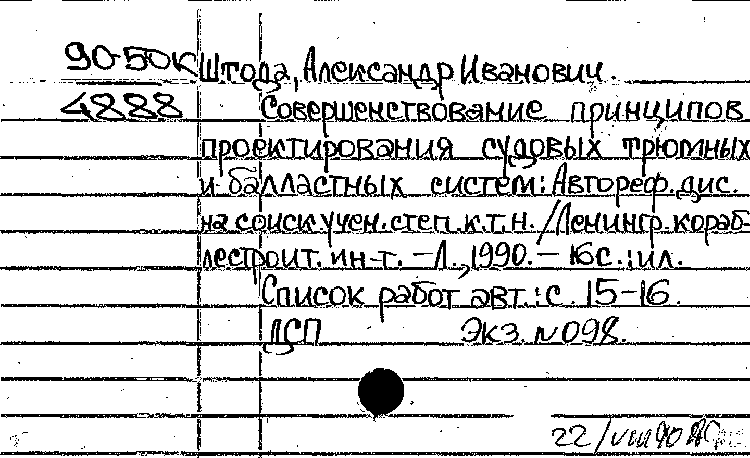 90-50К Штода, Александр Иванович.
4888 Совершенствование принципов
проектирования судовых трюмных
и балластных систем: Автореф. дис.
на соиск. учен. степ. к.т.н. / Ленингр. кораб-
лестроит. ин-т. – Л., 1990. – 16 с.: ил.
Список работ авт.: с. 15–16.
ДСП Экз. № 098.
22/VIII 90